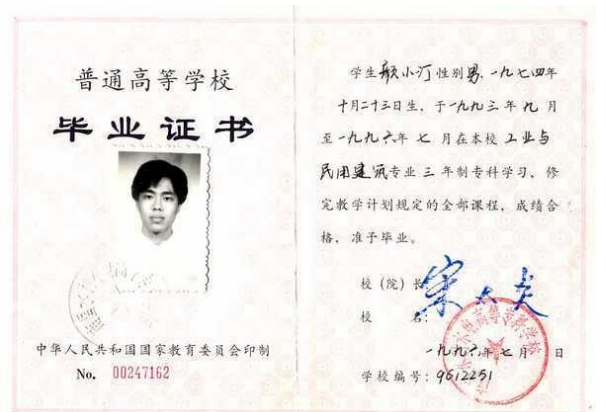 普通高等学校
毕业证书
中华人民共和国国家教育委员会印制
No. 00247162
学生 小汀 性别 男, 一九七四年
十月二十三日生, 于一九九三年九月
至一九九六年七月在本校 工业与
民用建筑 专业 三 年制专科学习, 修
完教学计划规定的全部课程, 成绩合
格, 准予毕业。
校 (院) 长
校 名:
高等专科学校
一九九六年七月 日
学校编号: 9612251